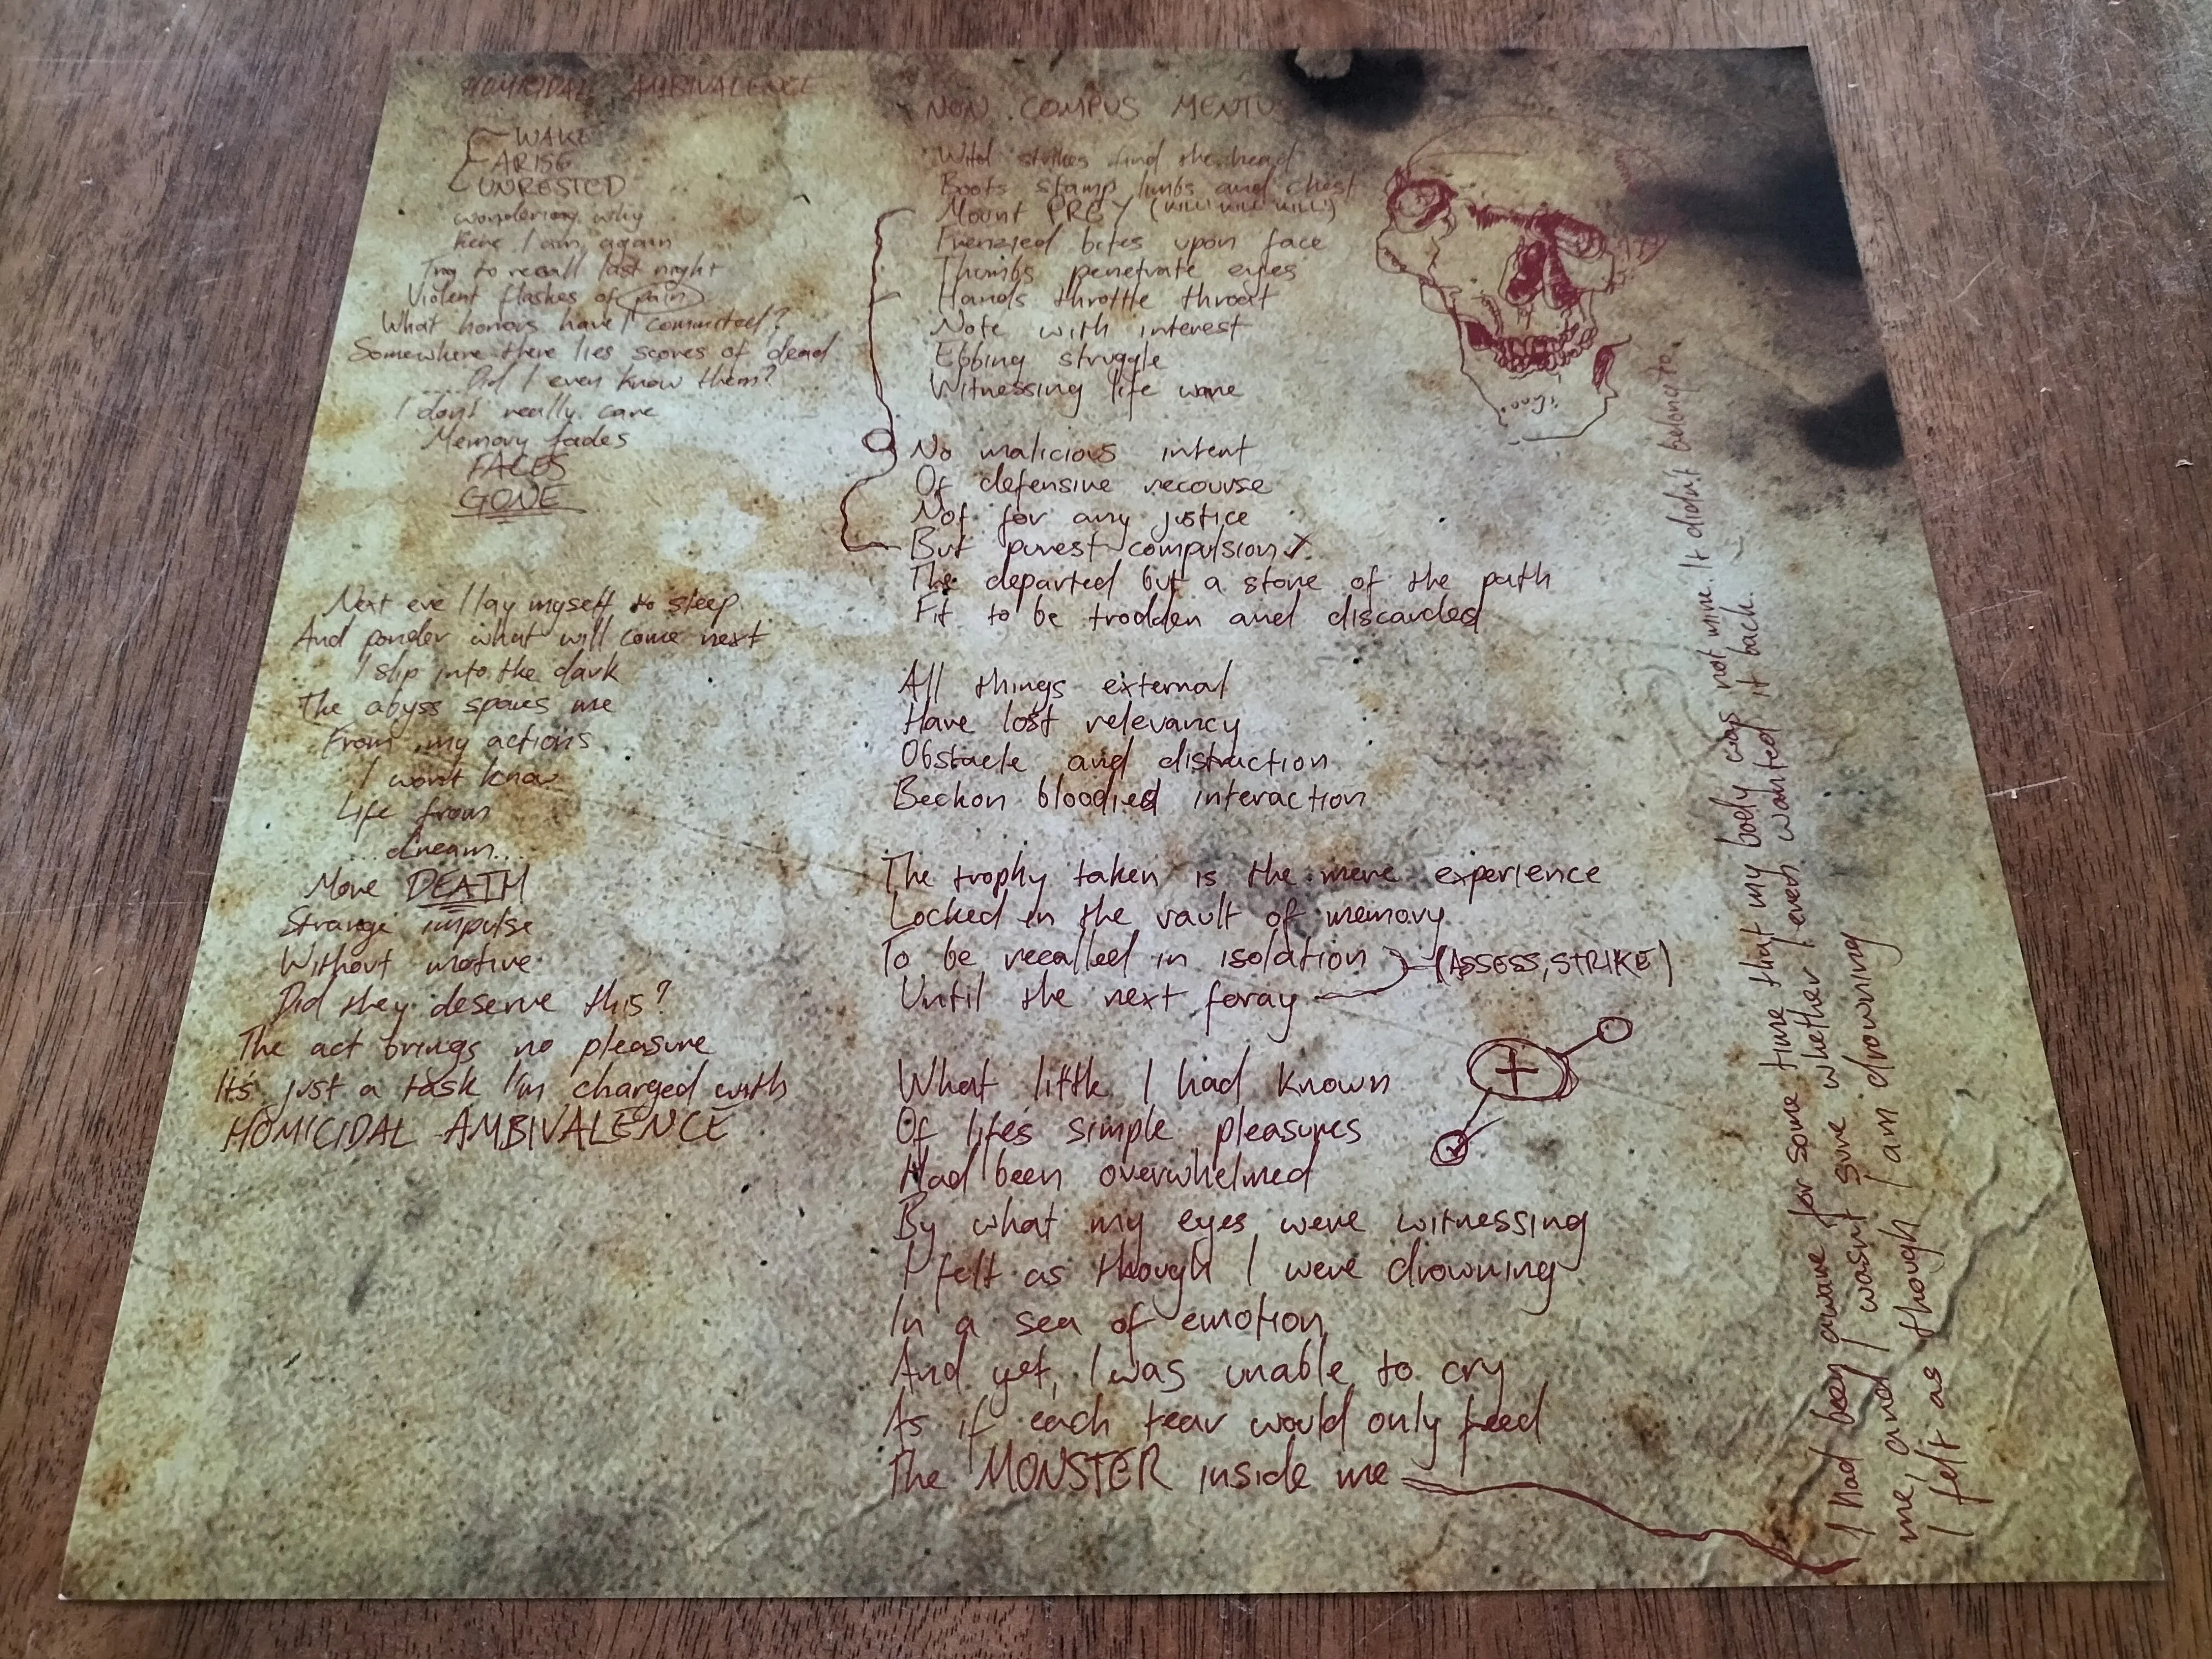 HOMICIDAL AMBIVALENCE
WAKE
ARISE
UNRESTED
wondering why
here I am again
Try to recall last night
Violent flashes of pain
What horrors have I committed?
Somewhere there lies scores of dead
....Did I even know them?
I dont really care
Memory fades
FACES
GONE
Next eve I lay myself to sleep
And ponder what will come next
I slip into the dark
The abyss spares me
From my actions
I wont know
Life from
...dream...
More DEATH
Strange impulse
Without motive
Did they deserve this?
The act brings no pleasure
It's just a task I'm charged with
HOMICIDAL AMBIVALENCE
NON COMPUS MENTUS
Wild strikes find the head
Boots stamp limbs and chest
Mount PREY (KILL! KILL! KILL!)
Frenzied bites upon face
Thumbs penetrate eyes
Hands throttle throat
Note with interest
Ebbing struggle
Witnessing life wane
No malicious intent
Of defensive recourse
Not for any justice
But purest compulsion
The departed but a stone of the path
Fit to be trodden and discarded
All things external
Have lost relevancy
Obstacle and distraction
Beckon bloodied interaction
The trophy taken is the mere experience
Locked in the vault of memory
To be recalled in isolation (ASSESS, STRIKE)
Until the next foray
What little I had known
Of lifes simple pleasures
Had been overwhelmed
By what my eyes were witnessing
I felt as though I were drowning
In a sea of emotion
And yet, I was unable to cry
As if each tear would only feed
The MONSTER inside me
I had been aware for some time that my body was not mine. It didn't belong to
me, and I wasnt sure whether I even wanted it back.
I felt as though I am drowning